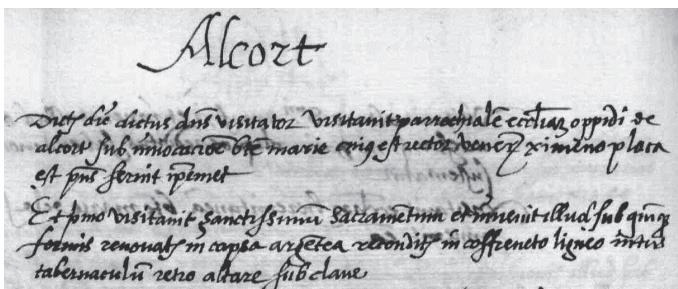 Alcort
Dicto die dictus dns visitator visitauit parrochialē eccliaz oppidi de
alcort sub inuocacione bte marie cuiq est rector venerz ximeno placa
est pns seruit ipemet
Et pmo visitauit sanctissimū sacrametum et inuenit illud sub quinqz
formis renouat in capsa argetea recondit in coffreneto ligneo intus
tabernaculū retro altare sub claue